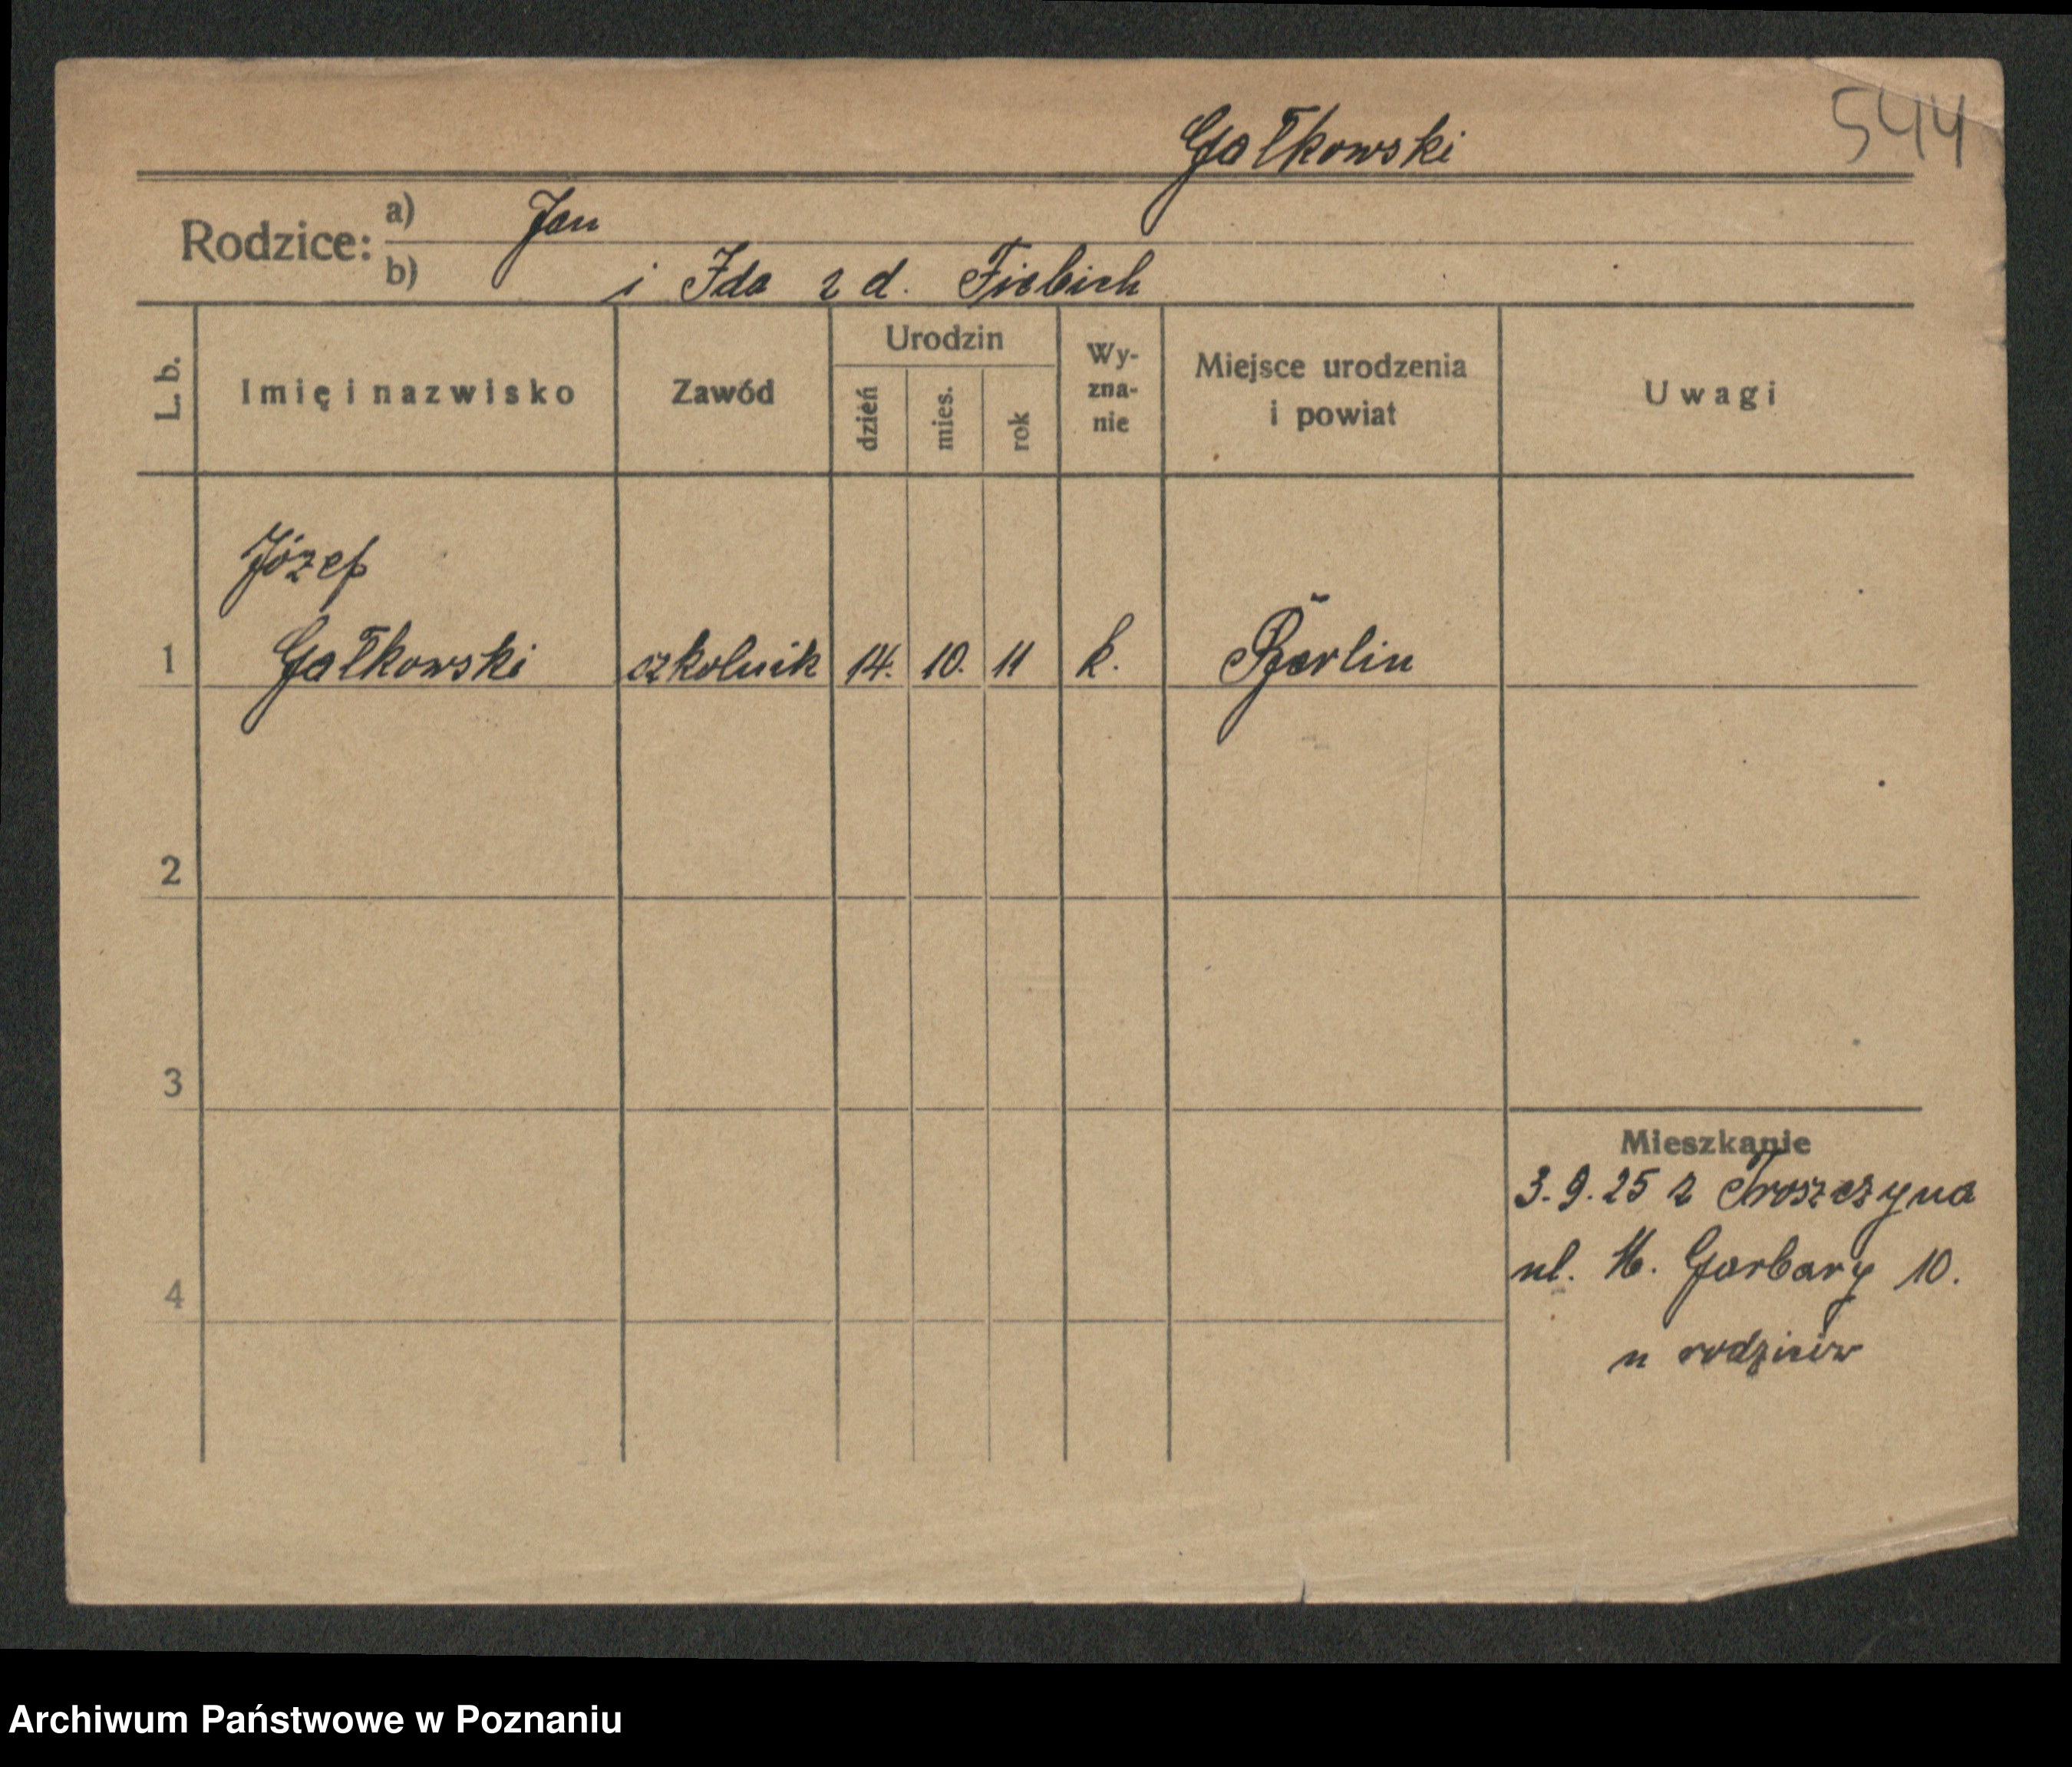 Gałkowski
544
Rodzice:
a) Jan
b) i Ida z d. Fiebich
L. b.
Imię i nazwisko
Zawód
Urodzin
dzień
mies.
rok
Wy-
zna-
nie
Miejsce urodzenia
i powiat
Uwagi
Józef
1 Gałkowski szkolnik 14. 10. 11 k. Berlin
2
3
4
Mieszkanie
3. 9. 25 z Troszczyna
ul. M. Garbary 10.
u rodziców
Archiwum Państwowe w Poznaniu